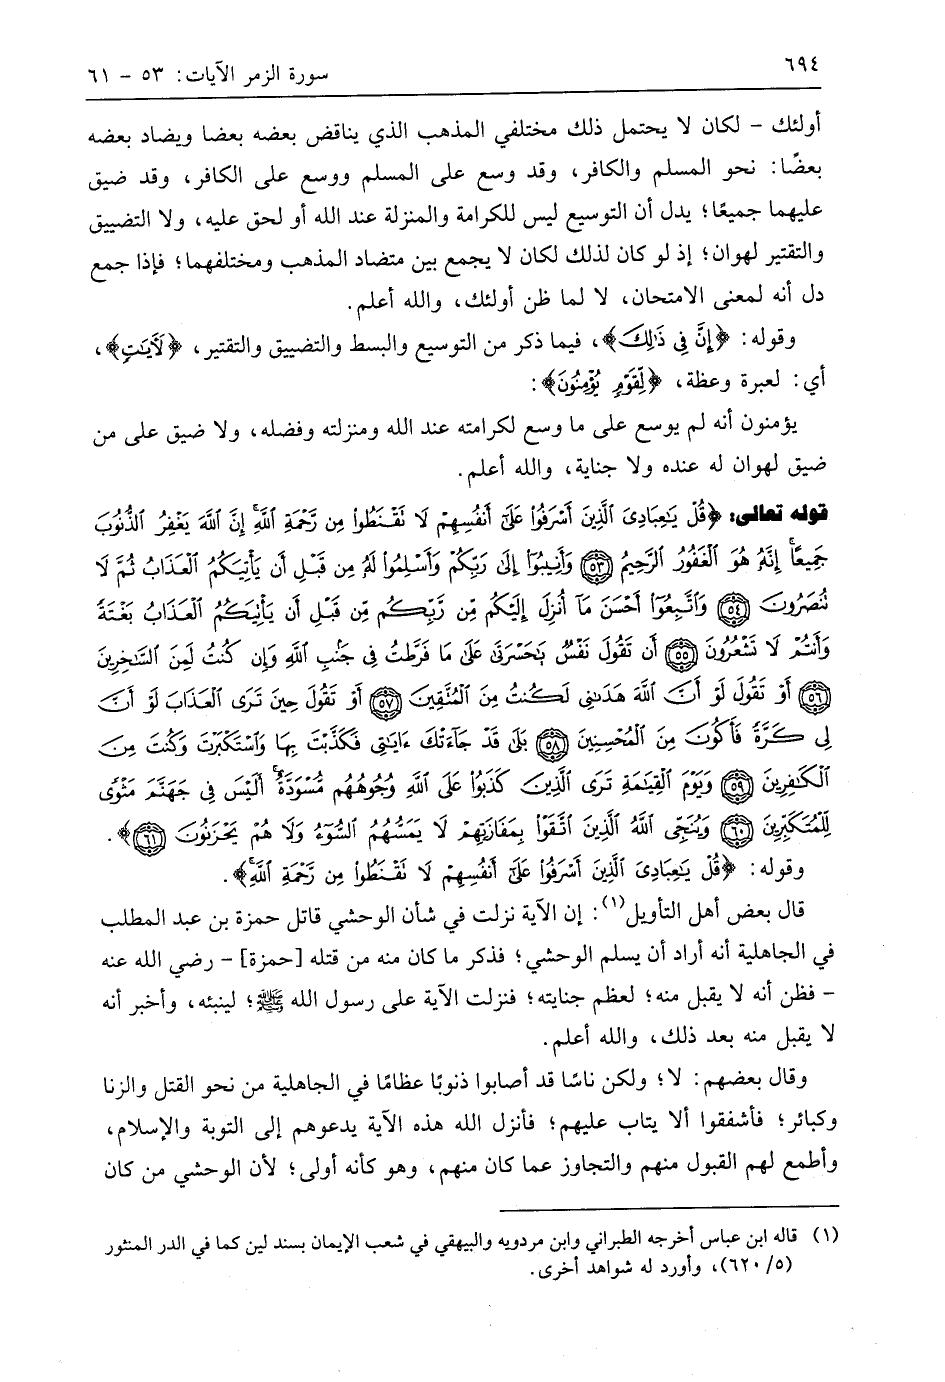 ٦٩٤
سورة الزمر الآيات: ٥٣ – ٦١
أولئك – لكان لا يحتمل ذلك مختلفي المذهب الذي يناقض بعضه بعضا ويضاد بعضه
بعضًا: نحو المسلم والكافر، وقد وسع على المسلم ووسع على الكافر، وقد ضيق
عليهما جميعًا؛ يدل أن التوسيع ليس للكرامة والمنزلة عند الله أو لحق عليه، ولا التضييق
والتقتير لهوان؛ إذ لو كان لذلك لكان لا يجمع بين متضاد المذهب ومختلفهما؛ فإذا جمع
دل أنه لمعنى الامتحان، لا لما ظن أولئك، والله أعلم.
وقوله: ﴿إِنَّ فِي ذَٰلِكَ﴾، فيما ذكر من التوسيع والبسط والتضييق والتقتير، ﴿لَآيَٰتٍ﴾،
أي: لعبرة وعظة، ﴿لِّقَوْمٍ يُؤْمِنُونَ﴾:
يؤمنون أنه لم يوسع على ما وسع لكرامته عند الله ومنزلته وفضله، ولا ضيق على من
ضيق لهوان له عنده ولا جناية، والله أعلم.
قوله تعالى: ﴿قُلْ يَٰعِبَادِىَ ٱلَّذِينَ أَسْرَفُوا۟ عَلَىٰٓ أَنفُسِهِمْ لَا تَقْنَطُوا۟ مِن رَّحْمَةِ ٱللَّهِ ۚ إِنَّ ٱللَّهَ يَغْفِرُ ٱلذُّنُوبَ
جَمِيعًا ۚ إِنَّهُۥ هُوَ ٱلْغَفُورُ ٱلرَّحِيمُ ﴿٥٣﴾ وَأَنِيبُوٓا۟ إِلَىٰ رَبِّكُمْ وَأَسْلِمُوا۟ لَهُۥ مِن قَبْلِ أَن يَأْتِيَكُمُ ٱلْعَذَابُ ثُمَّ لَا
تُنصَرُونَ ﴿٥٤﴾ وَٱتَّبِعُوٓا۟ أَحْسَنَ مَآ أُنزِلَ إِلَيْكُم مِّن رَّبِّكُم مِّن قَبْلِ أَن يَأْتِيَكُمُ ٱلْعَذَابُ بَغْتَةً
وَأَنتُمْ لَا تَشْعُرُونَ ﴿٥٥﴾ أَن تَقُولَ نَفْسٌ يَٰحَسْرَتَىٰ عَلَىٰ مَا فَرَّطتُ فِى جَنۢبِ ٱللَّهِ وَإِن كُنتُ لَمِنَ ٱلسَّٰخِرِينَ
﴿٥٦﴾ أَوْ تَقُولَ لَوْ أَنَّ ٱللَّهَ هَدَىٰنِى لَكُنتُ مِنَ ٱلْمُتَّقِينَ ﴿٥٧﴾ أَوْ تَقُولَ حِينَ تَرَى ٱلْعَذَابَ لَوْ أَنَّ
لِى كَرَّةً فَأَكُونَ مِنَ ٱلْمُحْسِنِينَ ﴿٥٨﴾ بَلَىٰ قَدْ جَآءَتْكَ ءَايَٰتِى فَكَذَّبْتَ بِهَا وَٱسْتَكْبَرْتَ وَكُنتَ مِنَ
ٱلْكَٰفِرِينَ ﴿٥٩﴾ وَيَوْمَ ٱلْقِيَٰمَةِ تَرَى ٱلَّذِينَ كَذَبُوا۟ عَلَى ٱللَّهِ وُجُوهُهُم مُّسْوَدَّةٌ ۚ أَلَيْسَ فِى جَهَنَّمَ مَثْوًى
لِّلْمُتَكَبِّرِينَ ﴿٦٠﴾ وَيُنَجِّى ٱللَّهُ ٱلَّذِينَ ٱتَّقَوْا۟ بِمَفَازَتِهِمْ لَا يَمَسُّهُمُ ٱلسُّوٓءُ وَلَا هُمْ يَحْزَنُونَ ﴿٦١﴾﴾.
وقوله: ﴿قُلْ يَٰعِبَادِىَ ٱلَّذِينَ أَسْرَفُوا۟ عَلَىٰٓ أَنفُسِهِمْ لَا تَقْنَطُوا۟ مِن رَّحْمَةِ ٱللَّهِ ۚ﴾.
قال بعض أهل التأويل(١): إن الآية نزلت في شأن الوحشي قاتل حمزة بن عبد المطلب
في الجاهلية أنه أراد أن يسلم الوحشي؛ فذكر ما كان منه من قتله [حمزة] – رضي الله عنه
– فظن أنه لا يقبل منه؛ لعظم جنايته؛ فنزلت الآية على رسول الله ﷺ؛ لينبئه، وأخبر أنه
لا يقبل منه بعد ذلك، والله أعلم.
وقال بعضهم: لا؛ ولكن ناسًا قد أصابوا ذنوبًا عظامًا في الجاهلية من نحو القتل والزنا
وكبائر؛ فأشفقوا ألا يتاب عليهم؛ فأنزل الله هذه الآية يدعوهم إلى التوبة والإسلام،
وأطمع لهم القبول منهم والتجاوز عما كان منهم، وهو كأنه أولى؛ لأن الوحشي من كان
(١) قاله ابن عباس أخرجه الطبراني وابن مردويه والبيهقي في شعب الإيمان بسند لين كما في الدر المنثور
(٥/ ٦٢٠)، وأورد له شواهد أخرى.